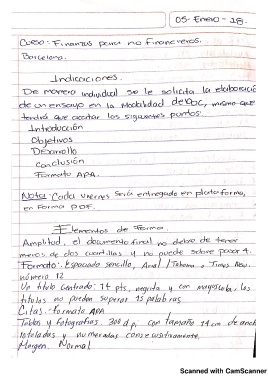 05-Enero-28.
Curso: Finanzas para no Financieros.
Barcelona.
Indicaciones.
De manera individual se le solicita la elaboració
de un ensayo en la Modalidad de, mismo que
tendrá que acatar los siguientes puntos:
Introducción
Objetivos
Desarrollo
Conclusión
Formato APA.
Nota: Cada viernes será entregado en plataforma,
en Forma PDF.
Elementos de Forma.
Amplitud, el documento final no debe de tener
menos de dos cuartillas y no puede sobre pasar 4.
Formato: Espaciado sencillo, Arial / Tahoma o Times New.
número 12
Un título Centrado: 14 pts, negrita y con mayúscula. los
títulos no pueden superar 15 palabras
Citas: formato APA
Tablas y fotografías. 300 dp, con tamaño 14 cm de anch
rotuladas y numeradas consecutivamente.
Margen Normal
Scanned with CamScanner